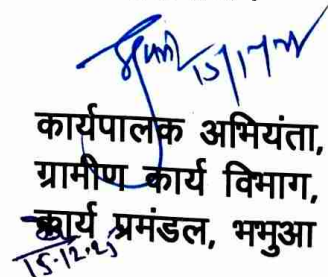 कार्यपालक अभियंता,
ग्रामीण कार्य विभाग,
कार्य प्रमंडल, भभुआ
15.12.25